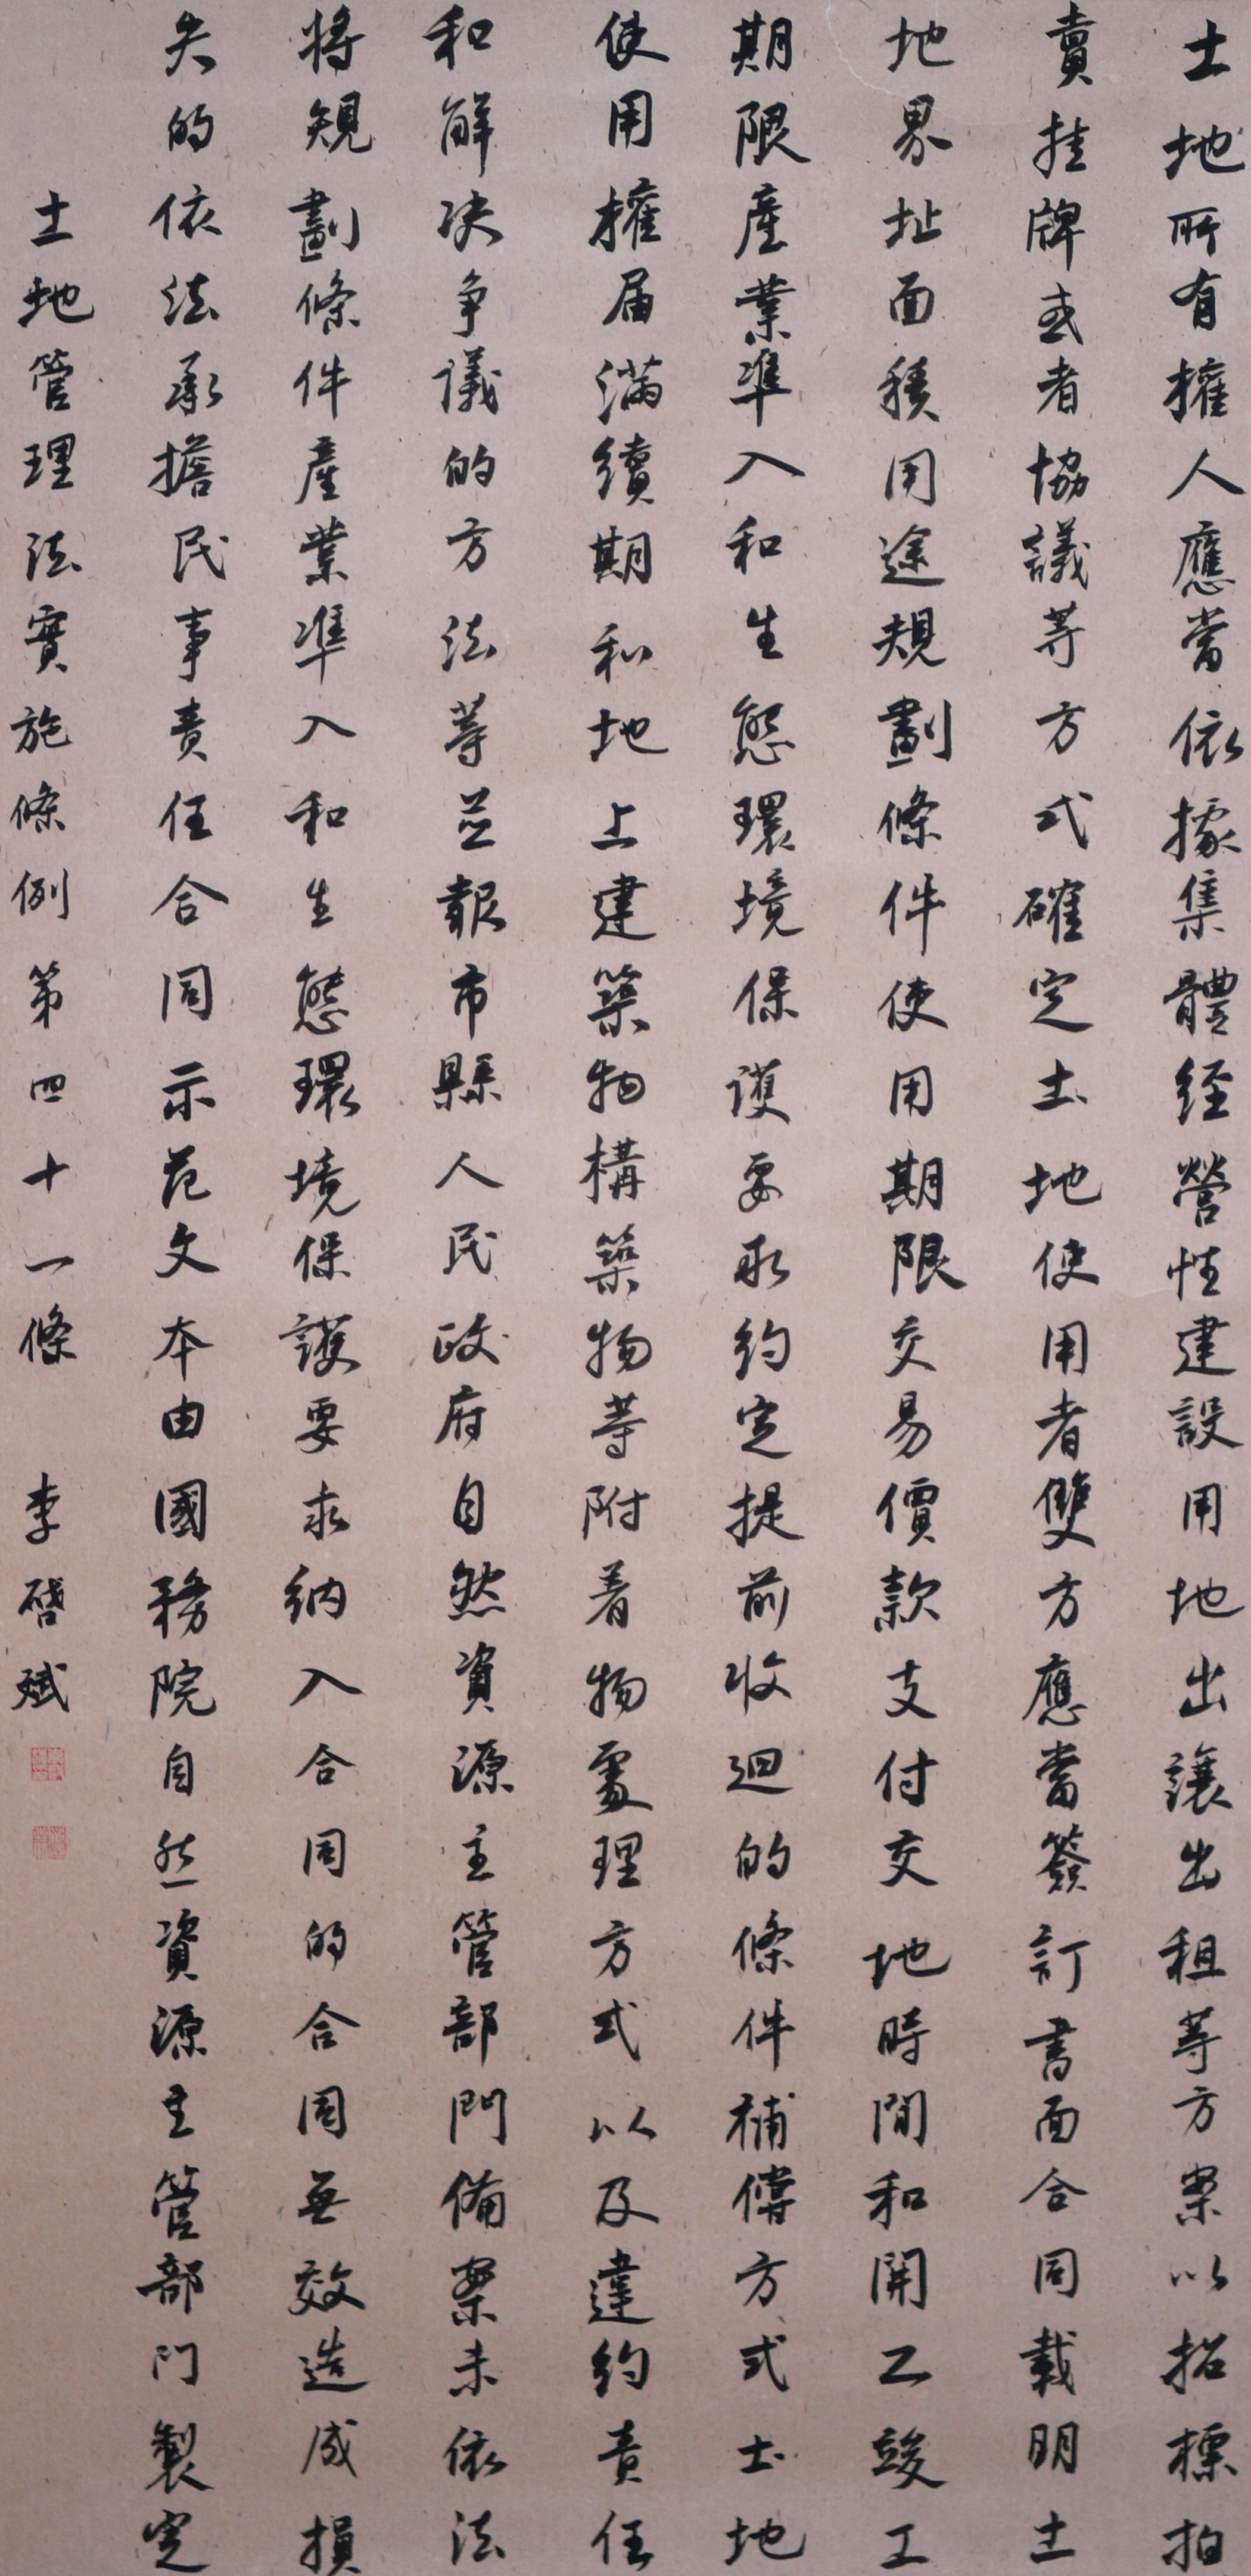 土地所有擁人應當依據集體經營性建設用地出讓出租等方案以招標拍
賣挂牌或者協議等方式確定土地使用者雙方應當簽訂書面合同載明土
地界址面積用途規劃條件使用期限交易價款支付交地時間和開工竣工
期限產業準入和生態環境保護要求約定提前收迴的條件補償方式土地
使用擁届滿續期和地上建築物構築物等附着物處理方式以及違約責任
和解决争議的方法等並報市縣人民政府自然資源主管部門備案未依法
將規劃條件產業準入和生態環境保護要求納入合同的合同無效造成損
失的依法承擔民事責任合同示范文本由國務院自然資源主管部門製定
土地管理法實施條例第四十一條 李啓斌